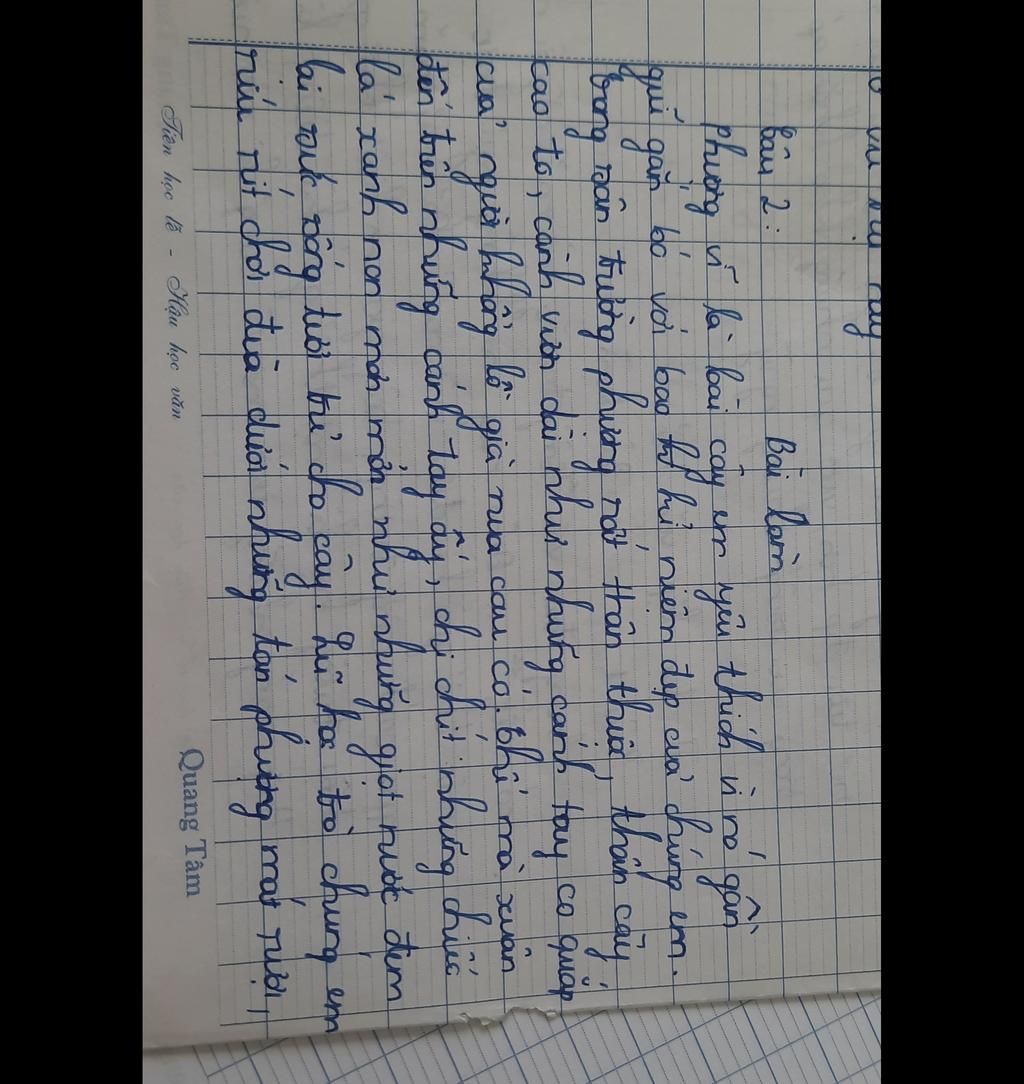 Câu 2:
Bài làm
Phượng vĩ là loài cây em yêu thích vì nó gần
gũi gắn bó với bao kỉ niệm đẹp của chúng em.
Trong sân trường phượng rất thân thiết, thân cây
cao to, cành vươn dài như những cánh tay co quắp
của người khổng lồ già nua cau có. Khi mà xuân
đến trên những cánh tay ấy, chi chít những chiếc
lá xanh non mơn mởn như những giọt nước đem
lại sức sống tươi trẻ cho cây. Lũ học trò chúng em
ríu rít chơi đùa dưới những tán phượng mát rượi,
Tiên học lễ - Hậu học văn
Quang Tâm